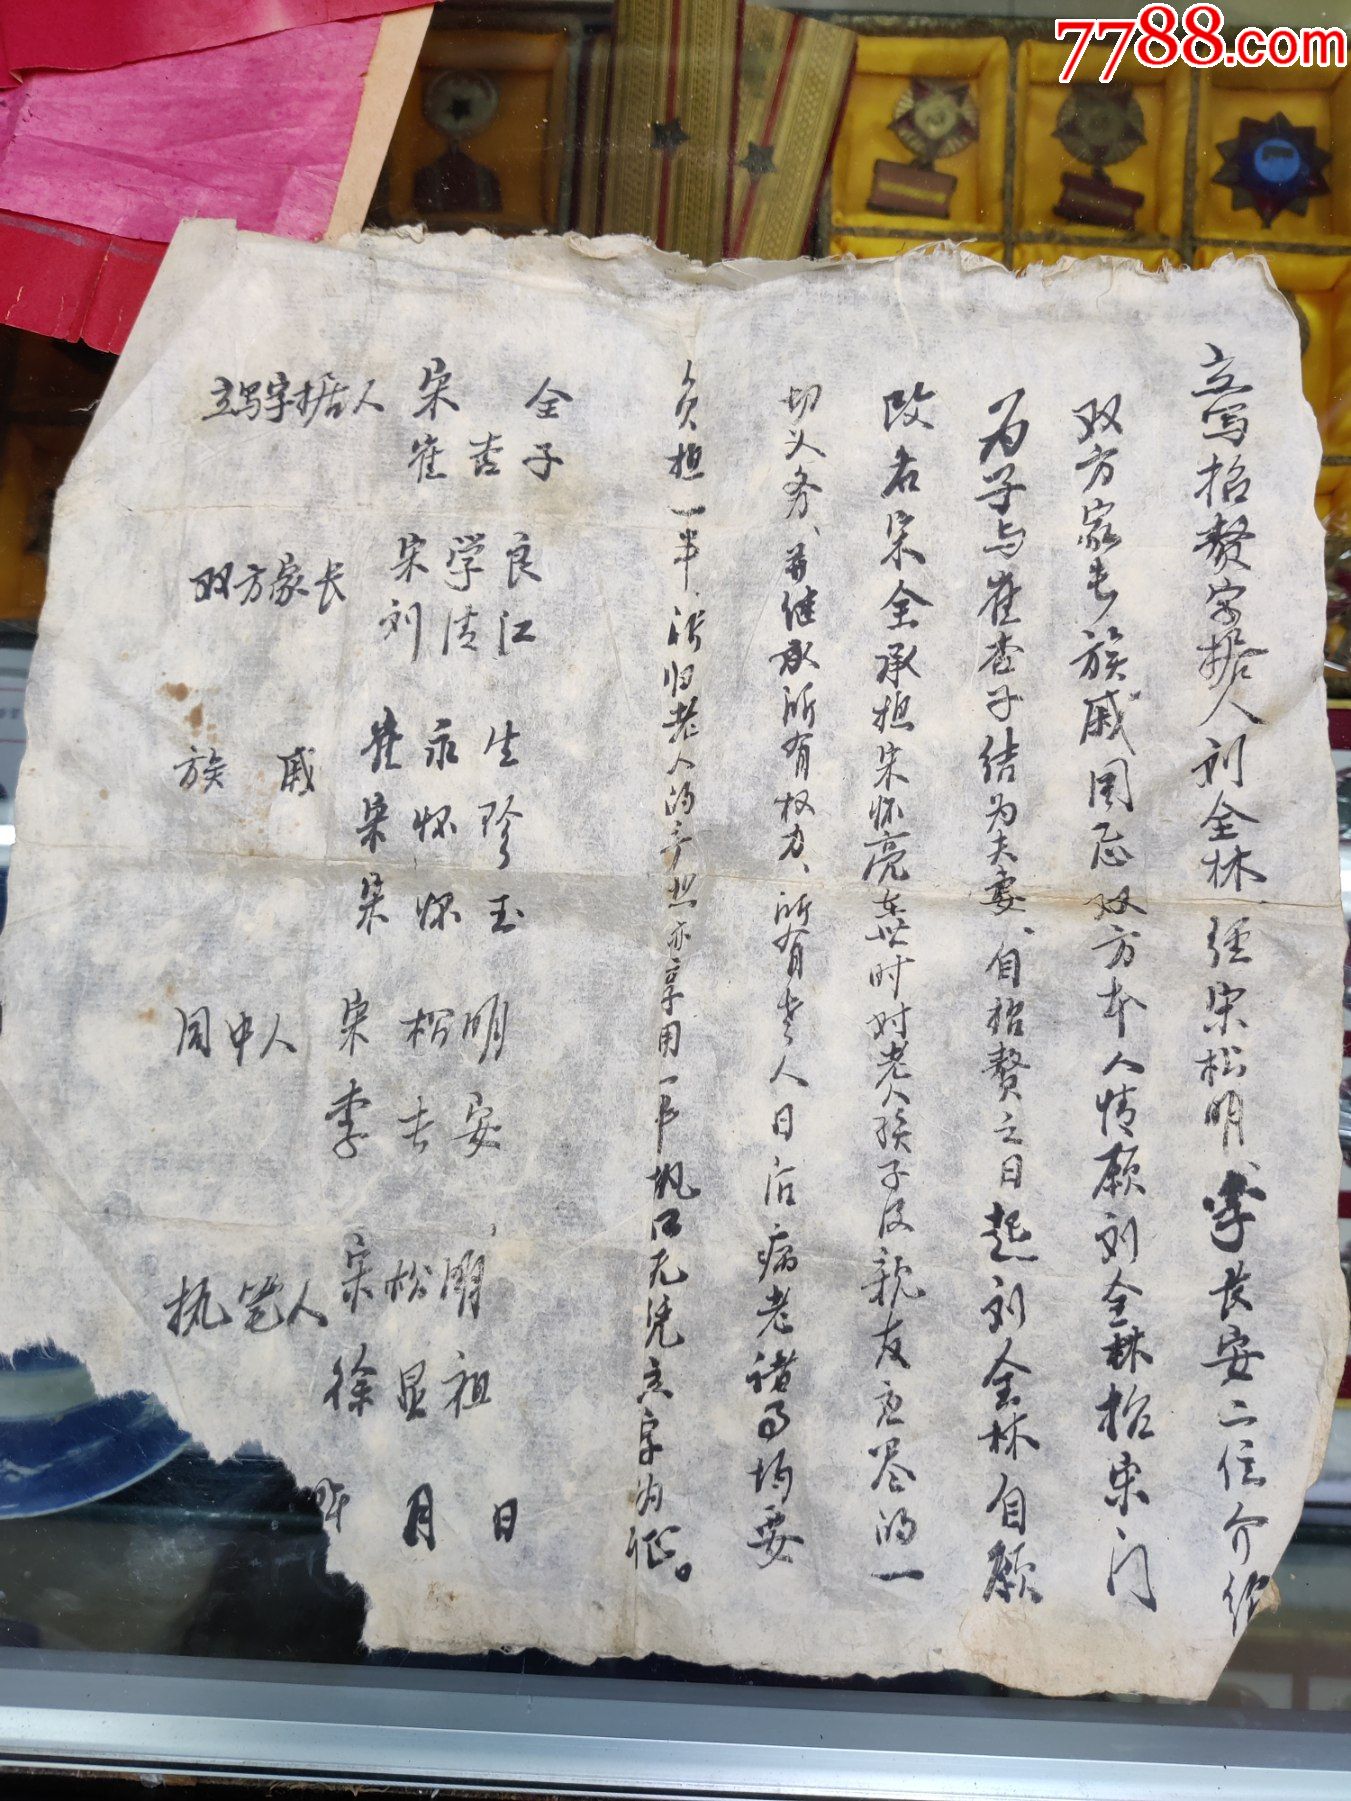 7788.com
立写招赘字据人刘全林，经宋松明、李长安二位介绍
双方家长族戚同意双方本人情愿刘全林招宋门
为子与崔杏子结为夫妻、自招赘之日起刘全林自愿
改名宋全承担宋怀亮在世时对老人孩子及亲友应尽的一
切义务、并继承所有权力、所有老人日后病老诸事均要
负担一半、归老人的产业亦享用一半 口无凭立字为证。
立写字据人 宋全
崔杏子
双方家长 宋学良
刘清江
族戚 崔永生
宋怀珍
宋怀玉
同中人 宋松明
李长安
执笔人 宋松明
徐显祖
年 月 日